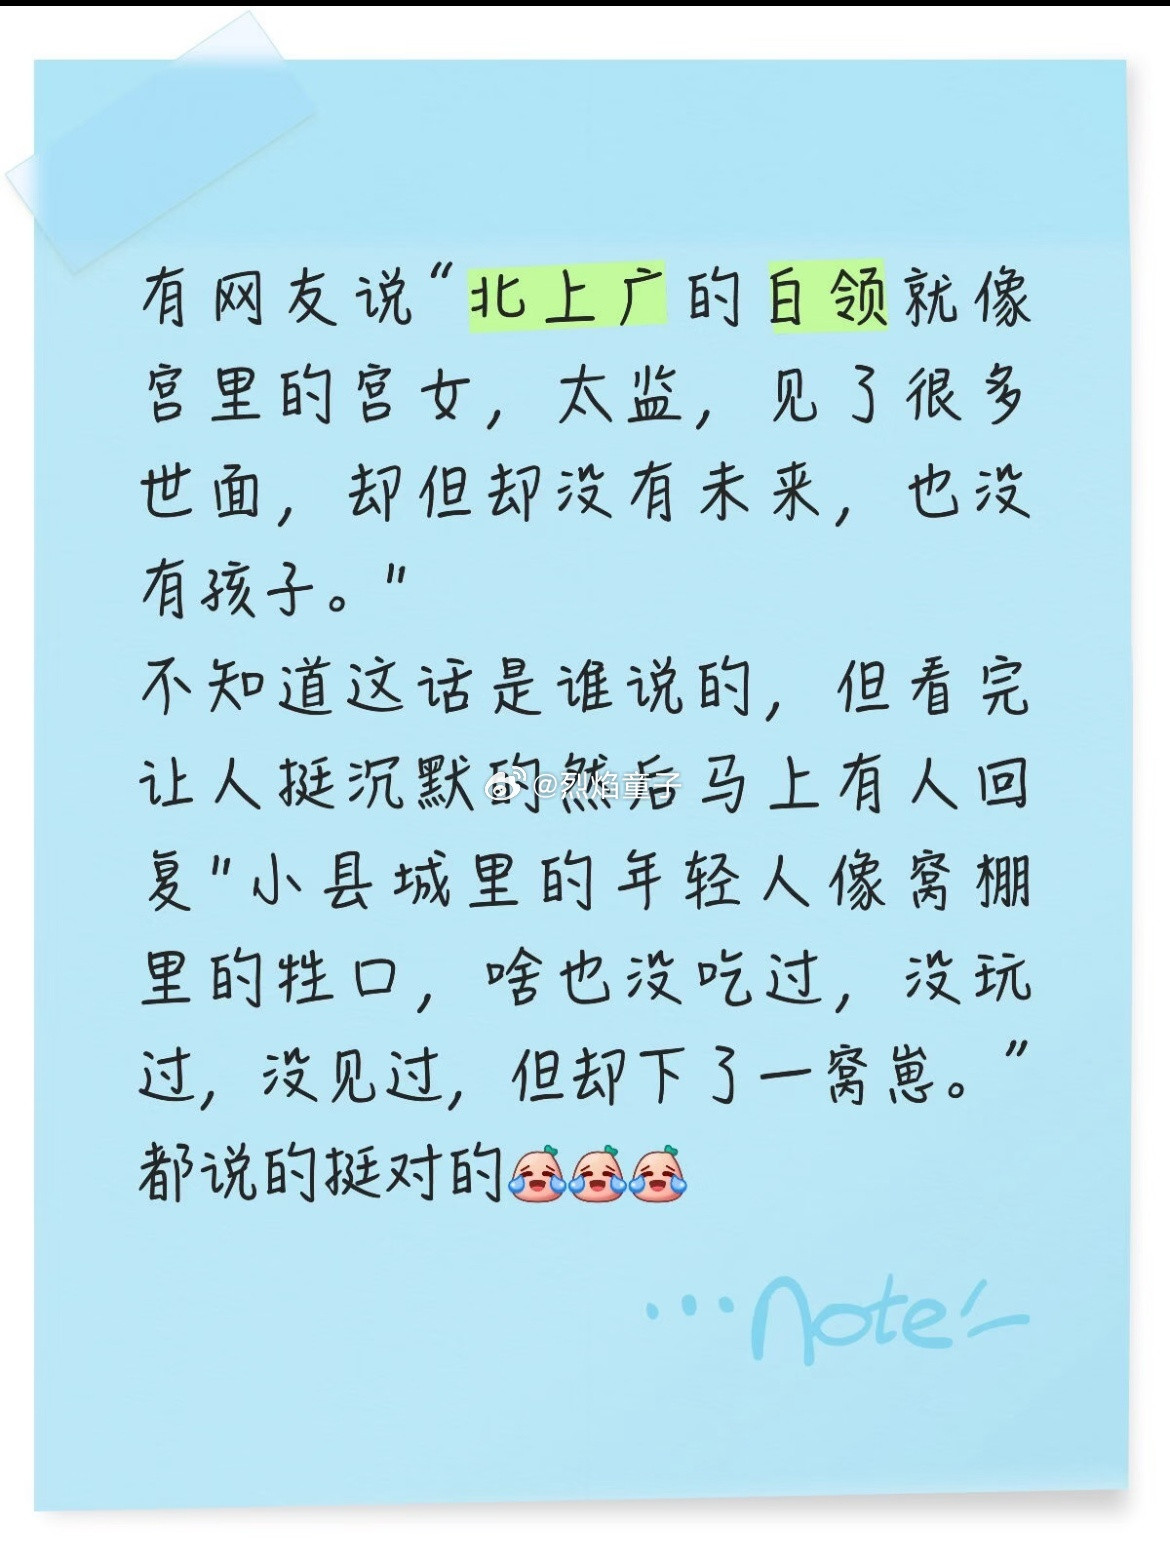 有网友说“北上广的白领就像
宫里的宫女，太监，见了很多
世面，却但却没有未来，也没
有孩子。"
不知道这话是谁说的，但看完
让人挺沉默的然后马上有人回
复"小县城里的年轻人像窝棚
里的牲口，啥也没吃过，没玩
过，没见过，但却下了一窝崽。”
都说的挺对的
@烈焰童子
...note